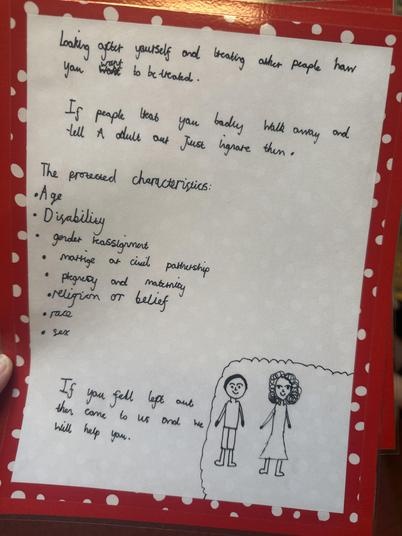 Looking after yourself and treating other people how
you want to be treated.
If people treat you badley walk away and
tell A adult out Just ignore then.
The protected characteristics:
• Age
• Disability
• gender reassignment
• marrige or civil partnership
• pregnecy and maternity
• religion or belief
• race
• sex
If you fell left out
then come to us and we
will help you.